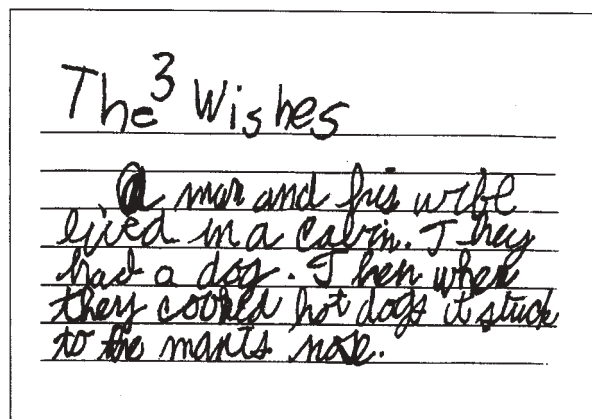 The 3 Wishes
A man and his wife
lived in a cabin. They
had a dog. Then when
they cooked hot dogs it stuck
to the man's nose.